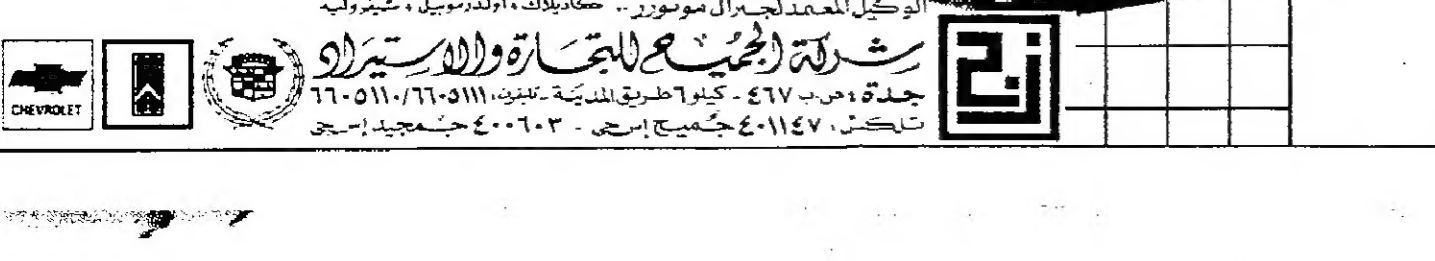 الوكيل المعتمد لجنرال موتورز .. كاديلاك ، أولدزموبيل ، شيفروليه
شركة الجميح للتجارة والاستيراد
جدة ، ص.ب ٤٦٧ - كيلو ٦ طريق المدينة - تليفون، ٦٦٠٥١١٠/٦٦٠٥١١١
تلكس، ٤٠١١٤٧ جميح إس جي - ٤٠٠٦٠٣ جمجيد إس جي
CHEVROLET